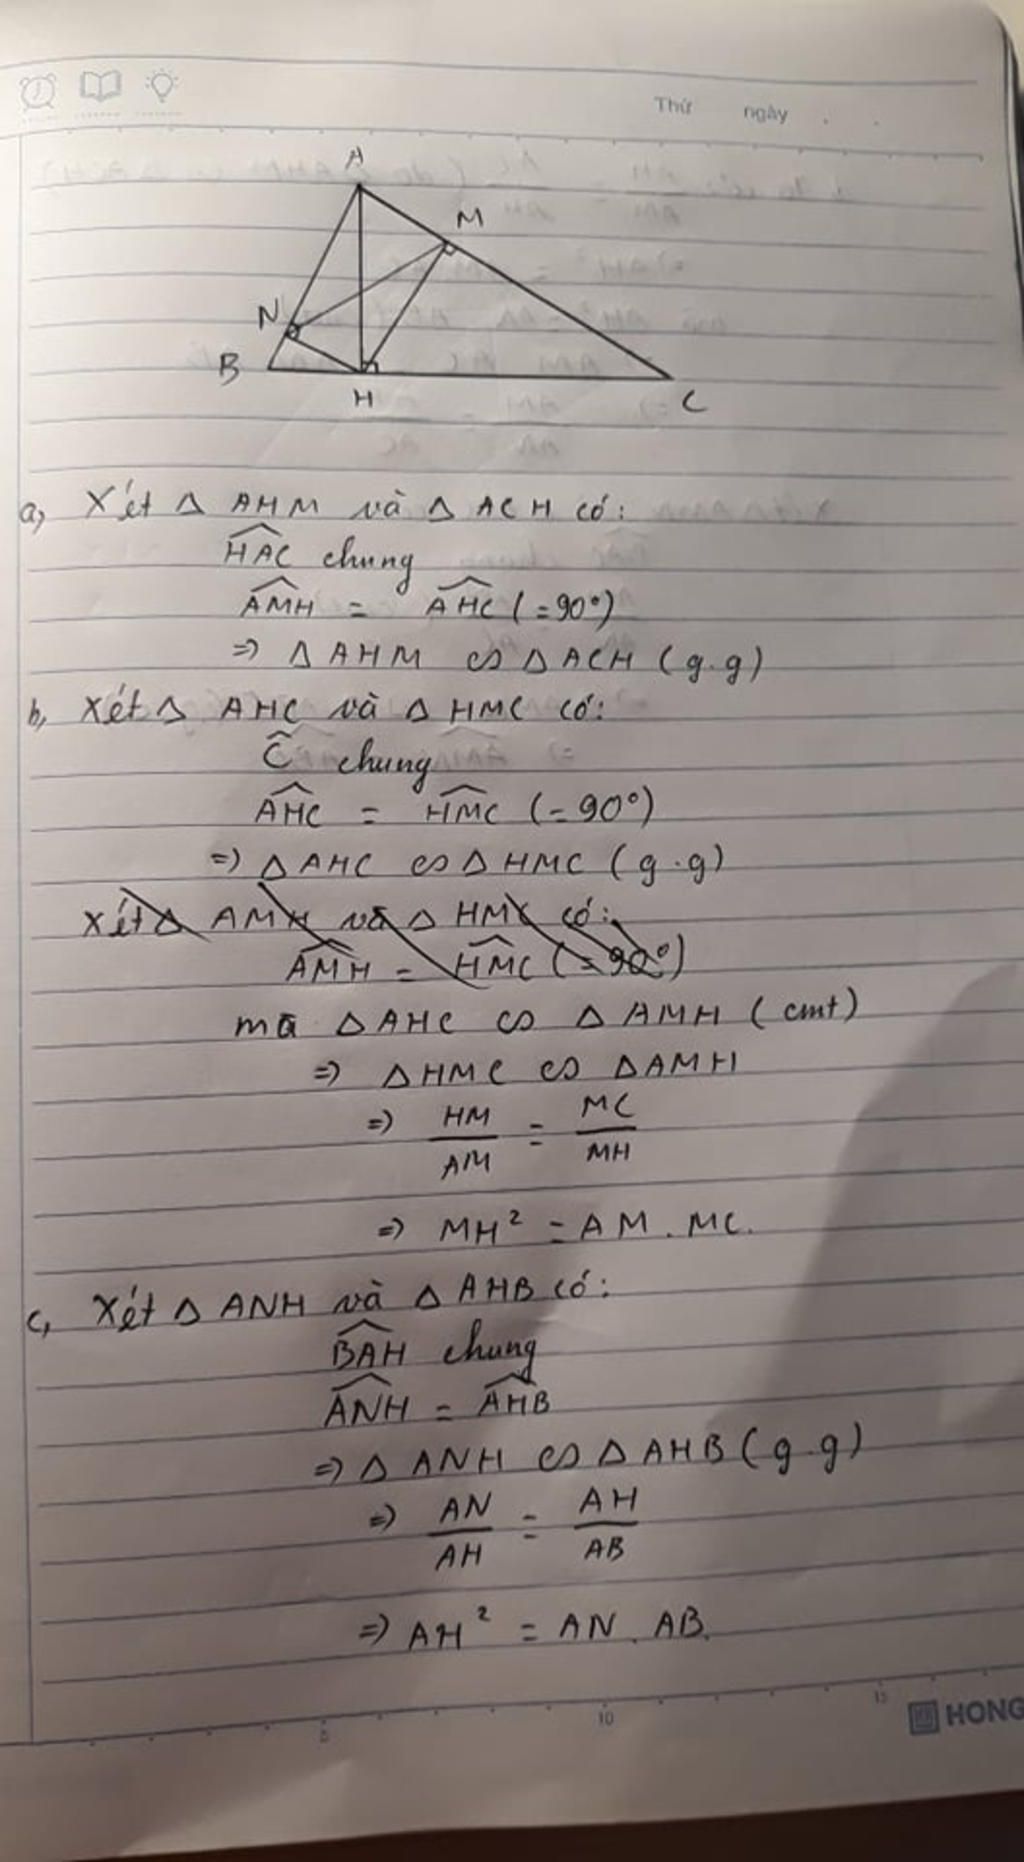 Thứ ngày
A
M
N
B
H
C
a, Xét Δ AHM và Δ ACH có:
HAC chung
AMH = AHC (=90°)
=> Δ AHM ∽ Δ ACH (g.g)
b, Xét Δ AHC và Δ HMC có:
C chung
AHC = HMC (=90°)
=> Δ AHC ∽ Δ HMC (g.g)
Xét Δ AMH và Δ HMC có:
AMH = HMC (=90°)
mà Δ AHC ∽ Δ AMH (cmt)
=> Δ HMC ∽ Δ AMH
=> HM/AM = MC/MH
=> MH² = AM . MC.
c, Xét Δ ANH và Δ AHB có:
BAH chung
ANH = AHB
=> Δ ANH ∽ Δ AHB (g.g)
=> AN/AH = AH/AB
=> AH² = AN . AB.
5 10 15
HONG